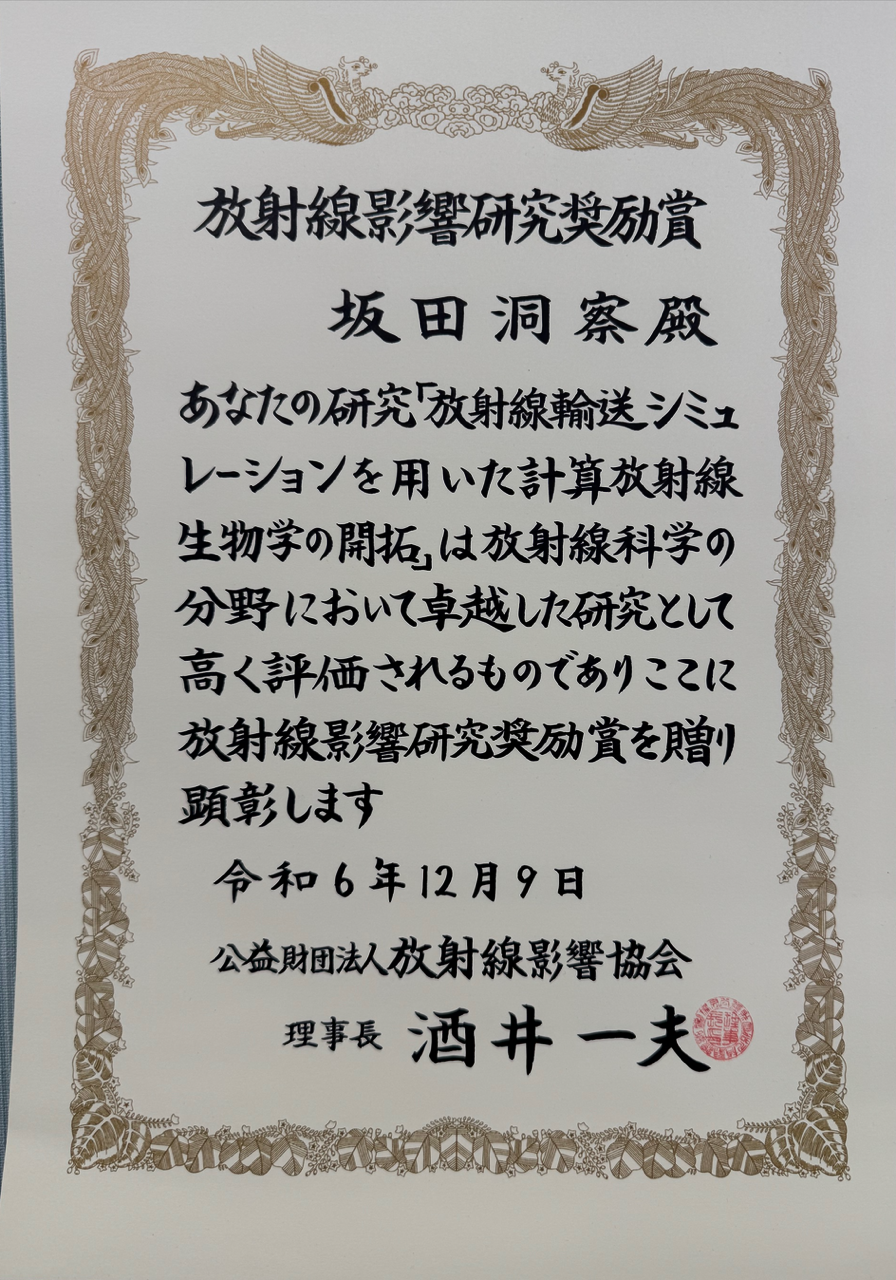 放射線影響研究奨励賞
坂田洞察殿
あなたの研究「放射線輸送シミュ
レーションを用いた計算放射線
生物学の開拓」は放射線科学の
分野において卓越した研究として
高く評価されるものでありここに
放射線影響研究奨励賞を贈り
顕彰します
令和6年12月9日
公益財団法人放射線影響協会
理事長 酒井一夫